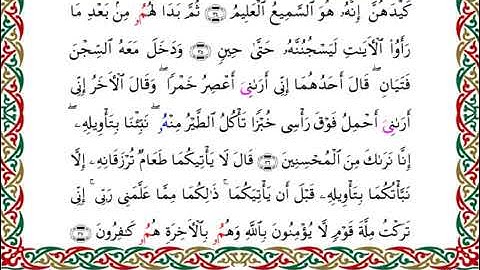 كَيْدَهُنَّ إِنَّهُۥ هُوَ ٱلسَّمِيعُ ٱلْعَلِيمُ ۝٣٤ ثُمَّ بَدَا لَهُمُۥ مِنۢ بَعْدِ مَا
رَأَوُا۟ ٱلْأَيَٰتِ لَيَسْجُنُنَّهُۥ حَتَّىٰ حِينٍ ۝٣٥ وَدَخَلَ مَعَهُ ٱلسِّجْنَ
فَتَيَانِ ۖ قَالَ أَحَدُهُمَا إِنِّى أَرَىٰنِىَ أَعْصِرُ خَمْرًا ۖ وَقَالَ ٱلْأَخَرُ إِنِّى
أَرَىٰنِىَ أَحْمِلُ فَوْقَ رَأْسِى خُبْزًا تَأْكُلُ ٱلطَّيْرُ مِنْهُۥ ۖ نَبِّئْنَا بِتَأْوِيلِهِۦ ۖ
إِنَّا نَرَىٰكَ مِنَ ٱلْمُحْسِنِينَ ۝٣٦ قَالَ لَا يَأْتِيكُمَا طَعَامٌ تُرْزَقَانِهِۦ إِلَّا
نَبَّأْتُكُمَا بِتَأْوِيلِهِۦ قَبْلَ أَن يَأْتِيَكُمَا ۚ ذَٰلِكُمَا مِمَّا عَلَّمَنِى رَبِّى ۚ إِنِّى
تَرَكْتُ مِلَّةَ قَوْمٍ لَّا يُؤْمِنُونَ بِٱللَّهِ وَهُمُۥ بِٱلْأَخِرَةِ هُمُۥ كَٰفِرُونَ ۝٣٧